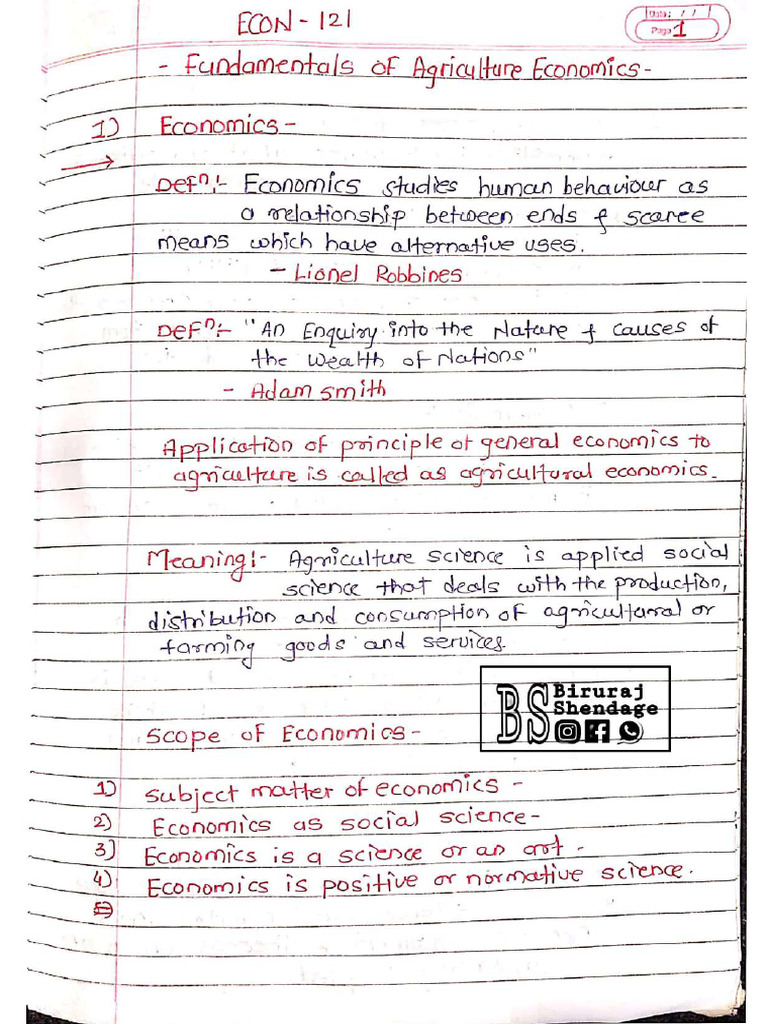 ECON - 121
Date: / /
Page 1
- Fundamentals of Agriculture Economics -
1) Economics -
Defⁿ:- Economics studies human behaviour as
a relationship between ends & scarce
means which have alternative uses.
- Lionel Robbines
Defⁿ:- "An Enquiry into the Nature & causes of
the Wealth of Nations"
- Adam Smith
Application of principle of general economics to
agriculture is called as agricultural economics.
Meaning:- Agriculture science is applied social
science that deals with the production,
distribution and consumption of agricultural or
farming goods and services.
BS Biruraj
Shendage
Scope of Economics -
1) Subject matter of economics -
2) Economics as social science -
3) Economics is a science or an art -
4) Economics is positive or normative science.